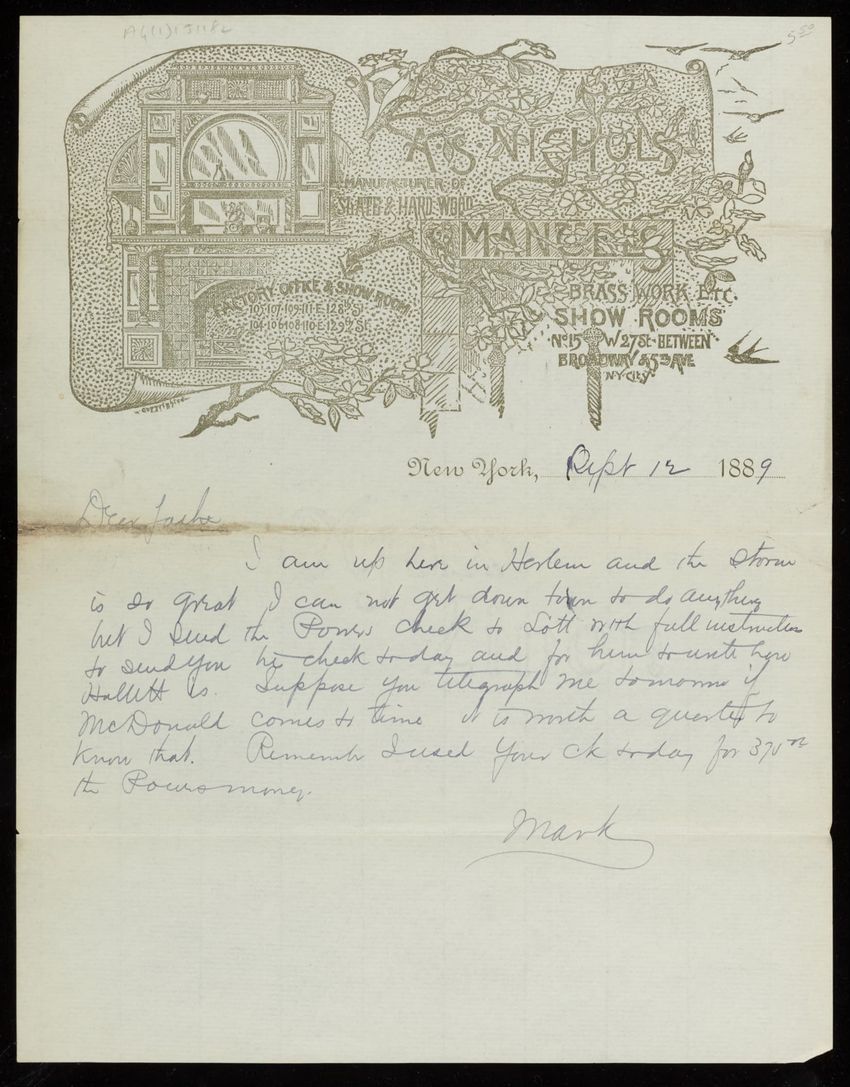 A.S. NICHOLS
MANUFACTURER OF
SLATE & HARD WOOD
MANTELS
BRASS WORK ETC.
SHOW ROOMS
No 15 W 27 St. BETWEEN
BROADWAY & 5th AVE
N.Y. City
FACTORY OFFICE & SHOW ROOM
105·107·109·111·E·128th St
104·106·108·110·E·129th St
COPYRIGHTED
New York, Sept 12 1889
Dear
I am up here in Harlem and the storm
is so great I can not get down town to do anything
but I send the Powers check to Lott with full instruction
to send you his check today and for him to write how
Hallett is. Suppose you telegraph me tomorrow if
McDonald comes to time it is worth a quarter to
know that. Remember I used your ck today for 370 00
the Powers money.
Mark